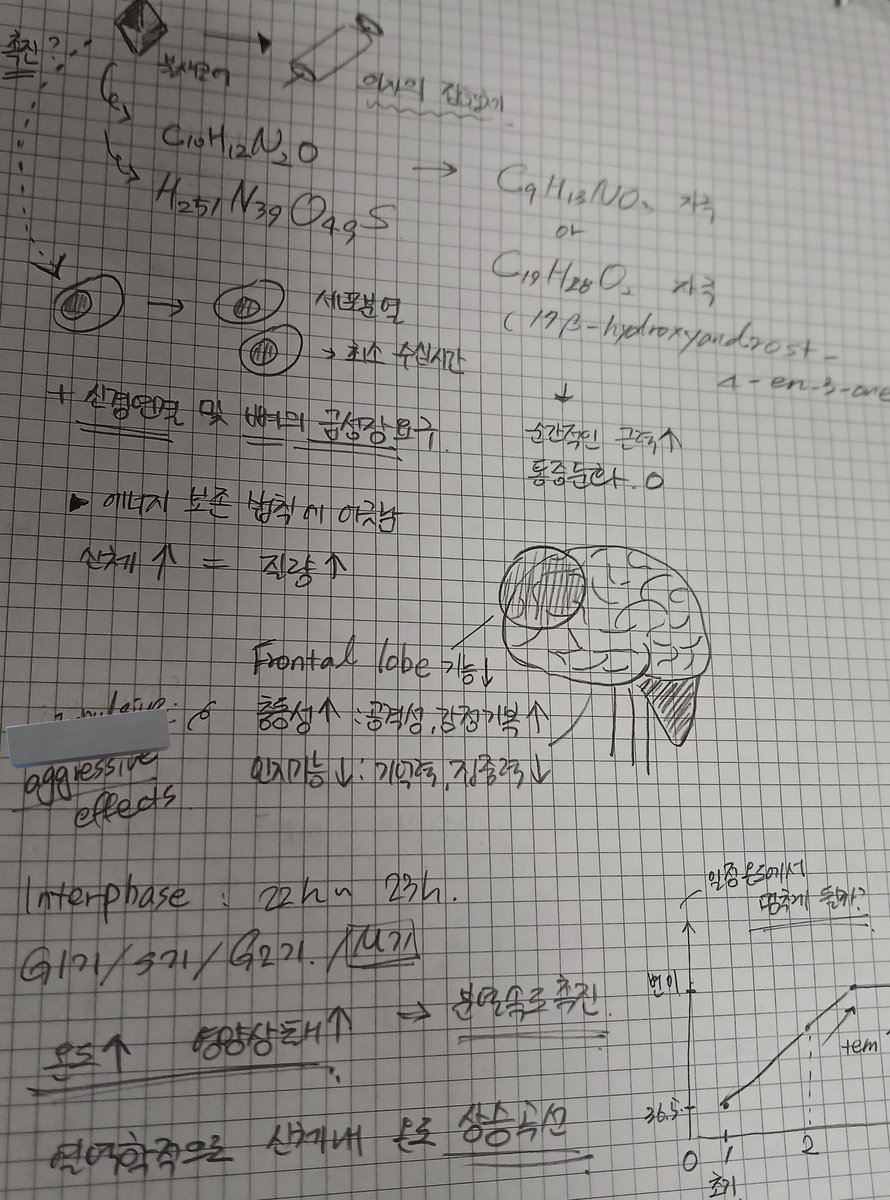 촉진?
C19H12N2O
H251N39O49S
C9H13NO3 자극
or
C19H28O2 자극
(17β-hydroxyandrost-
4-en-3-one
세포분열
→ 최소 수십시간
+ 신경연결 및 뼈의 급성장 요구.
순간적인 근력↑
통증둔화. O
▶ 에너지 보존 법칙에 어긋남
신체↑ = 질량↑
Frontal lobe 기능↓
충동성↑ : 공격성, 감정기복↑
인지기능↓ : 기억력, 집중력↓
aggressive
effects
Interphase : 22h ~ 23h.
G1기/S기/G2기./M기
온도↑ 영양상태↑ → 분열속도촉진.
열역학적으로 신체내 온도 상승곡선
일정온도에서
멈추게 될까?
변이
36.5
0 1 2
초기